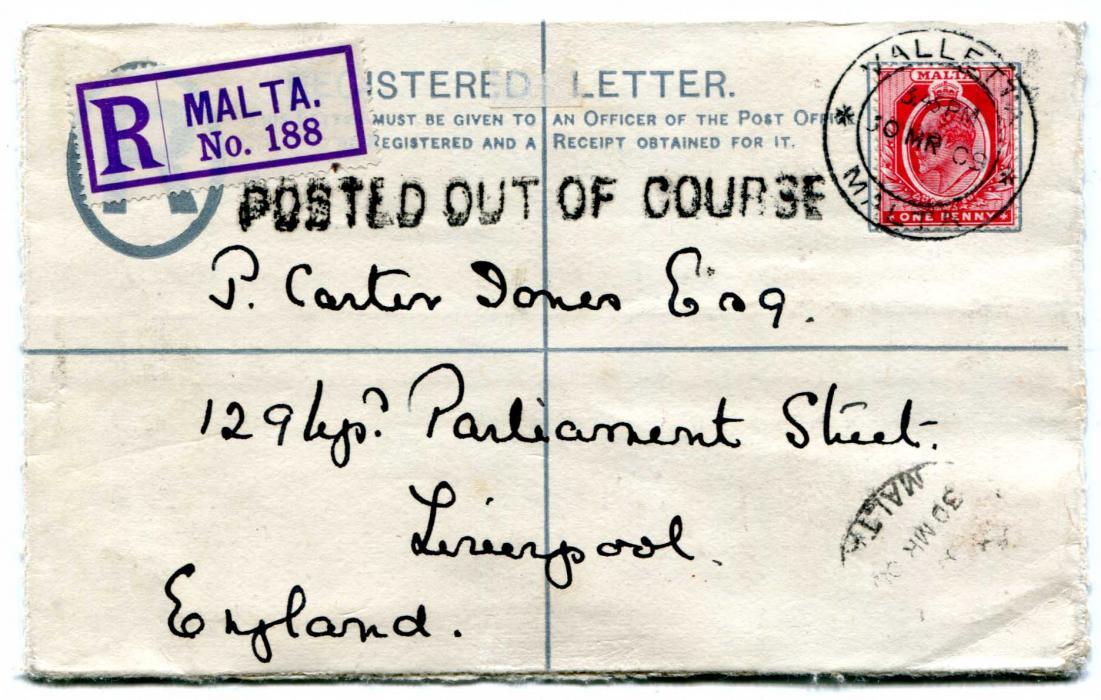 R MALTA.
No. 188
REGISTERED LETTER.
MUST BE GIVEN TO AN OFFICER OF THE POST OFFICE
REGISTERED AND A RECEIPT OBTAINED FOR IT.
VALLETTA
MALTA
30 MR 09
ONE PENNY
POSTED OUT OF COURSE
P. Carter Jones Esq.
129 Up? Parliament Street.
Liverpool.
England.
MALTA
30 MR